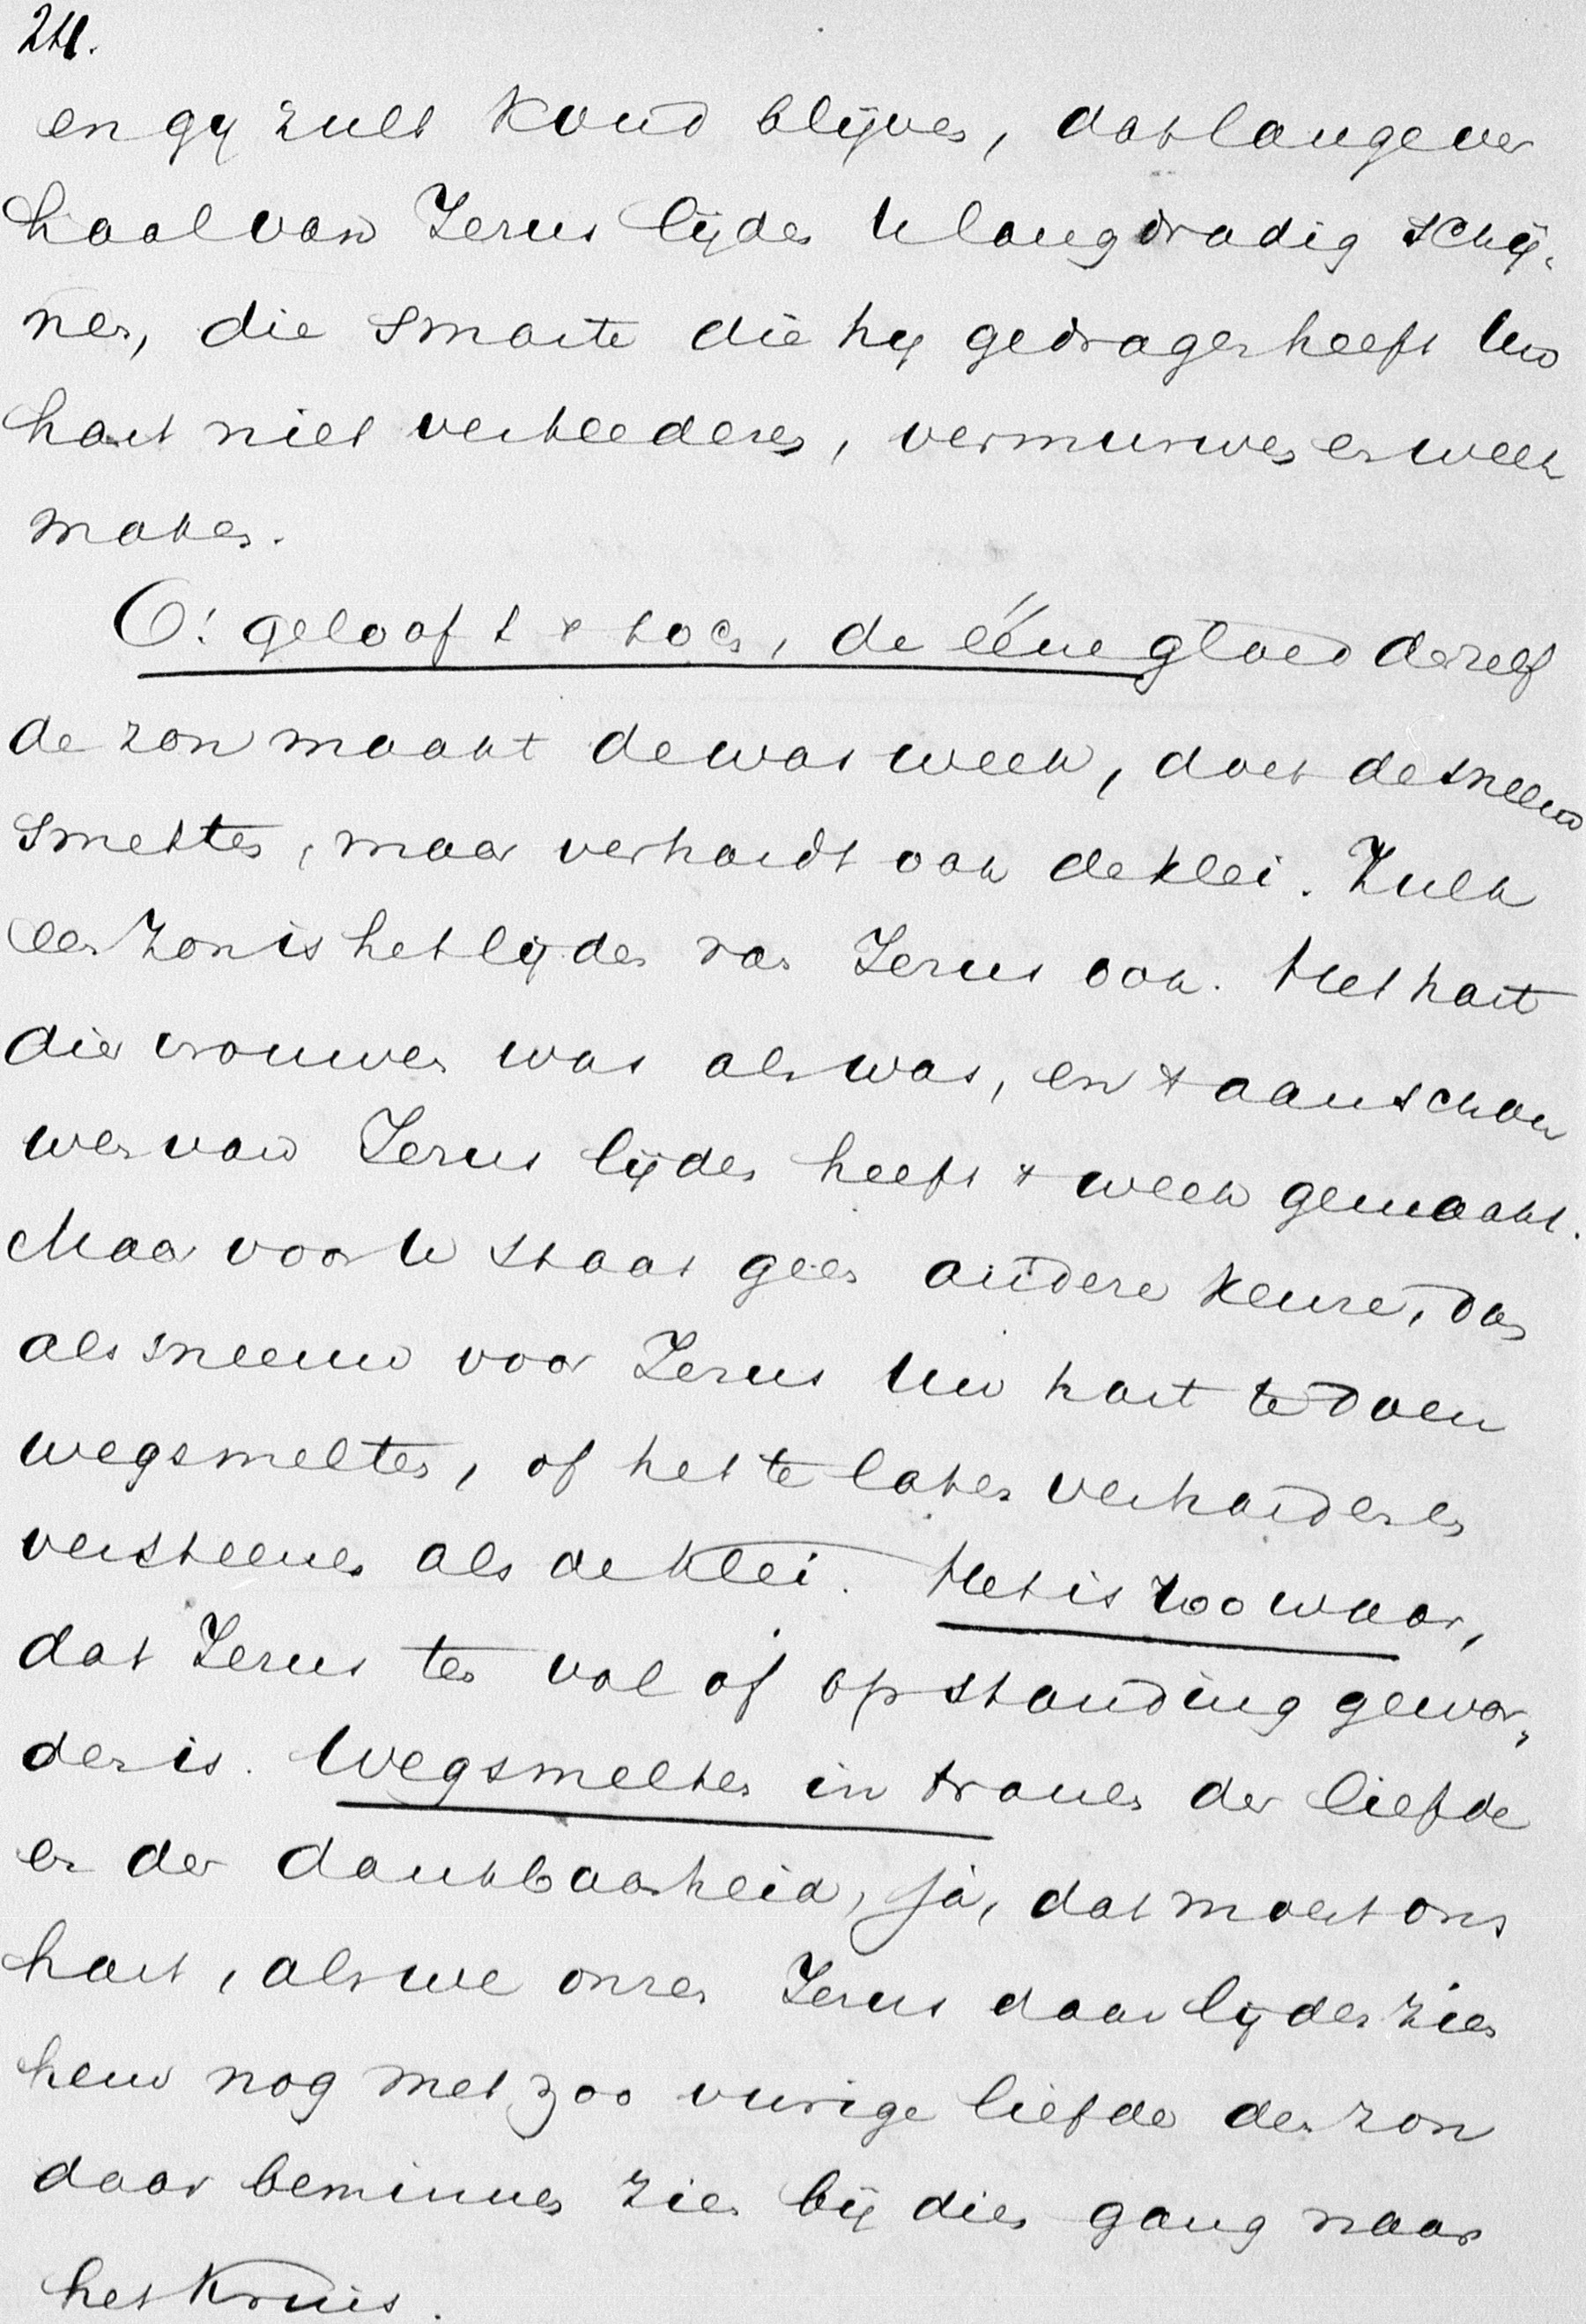 24.
en gy zult koud blijven, dat lange ver
haal van Jesus lijden U langdradig schij-
nen, die smarte die hy gedragen heeft Uw
hart niet verteederen, vermurwen en week
maken.
O! gelooft 't toch, de ééne gloed derzelf
de zon maakt de was week, doet de sneeuw
smelten, maar verhardt ook de klei. Zulk
een zon is het lijden van Jesus ook. Het hart
dier vrouwen was als was, en 't aanschou
wen van Jesus lijden heeft 't week gemaakt.
Maar voor U staat geen andere keure, dan
als sneeuw voor Jesus Uw hart te doen
wegsmelten, of het te laten verharden en
versteenen als de klei. Het is zoo waar,
dat Jesus ten val of opstanding gewor-
den is. Wegsmelten in tranen der liefde
en der dankbaarheid, ja, dat moet ons
hart, als we onzen Jesus daar lijden zien
hem nog met zoo vurige liefde den zon
daar beminnen zien bij dien gang naar
het Kruis.